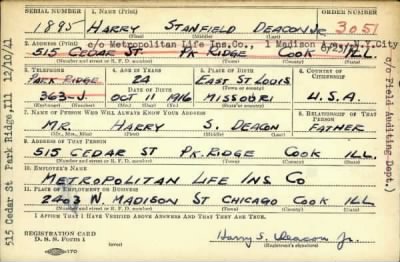 SERIAL NUMBER 1. NAME (Print) ORDER NUMBER
1895 HARRY STANFIELD DEACON JR 3051
(First) (Middle) (Last)
c/o Metropolitan Life Ins.Co., 1 Madison Ave. N.Y.City
2. ADDRESS (Print)
515 CEDAR ST PK. RIDGE COOK ILL.
(Number and street or R. F. D. number) (Town) (County) (State)
3. TELEPHONE 4. AGE IN YEARS 5. PLACE OF BIRTH 6. COUNTRY OF CITIZENSHIP
PARK RIDGE 24 EAST ST LOUIS
DATE OF BIRTH
363-J OCT 11 1916 MISSOURI U.S.A.
7. NAME OF PERSON WHO WILL ALWAYS KNOW YOUR ADDRESS 8. RELATIONSHIP OF THAT PERSON
MR. HARRY S. DEACON FATHER
(Mr., Mrs., Miss) (First) (Middle) (Last)
9. ADDRESS OF THAT PERSON
515 CEDAR ST PK. RIDGE COOK ILL.
(Number and street or R. F. D. number) (Town) (County) (State)
10. EMPLOYER'S NAME
METROPOLITAN LIFE INS. CO
11. PLACE OF EMPLOYMENT OR BUSINESS
2403 N. MADISON ST CHICAGO COOK ILL
(Number and street or R. F. D. number) (Town) (County) (State)
I AFFIRM THAT I HAVE VERIFIED ABOVE ANSWERS AND THAT THEY ARE TRUE.
REGISTRATION CARD
D. S. S. Form 1
Harry S. Deacon Jr.
515 Cedar St Park Ridge,Ill 12/10/41
c/o Field Auditing Dept.)